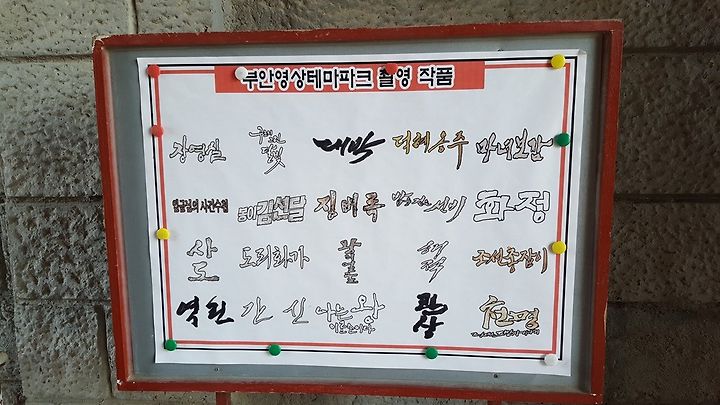 부안영상테마파크 촬영 작품
장영실 구르미 그린 달빛 대박 덕혜옹주 마녀보감
임금님의 사건수첩 봉이 김선달 징비록 밤을 걷는 선비 화정
사도 도리화가 해적 조선총잡이
역린 간신 나는 왕이로소이다 관상 천명